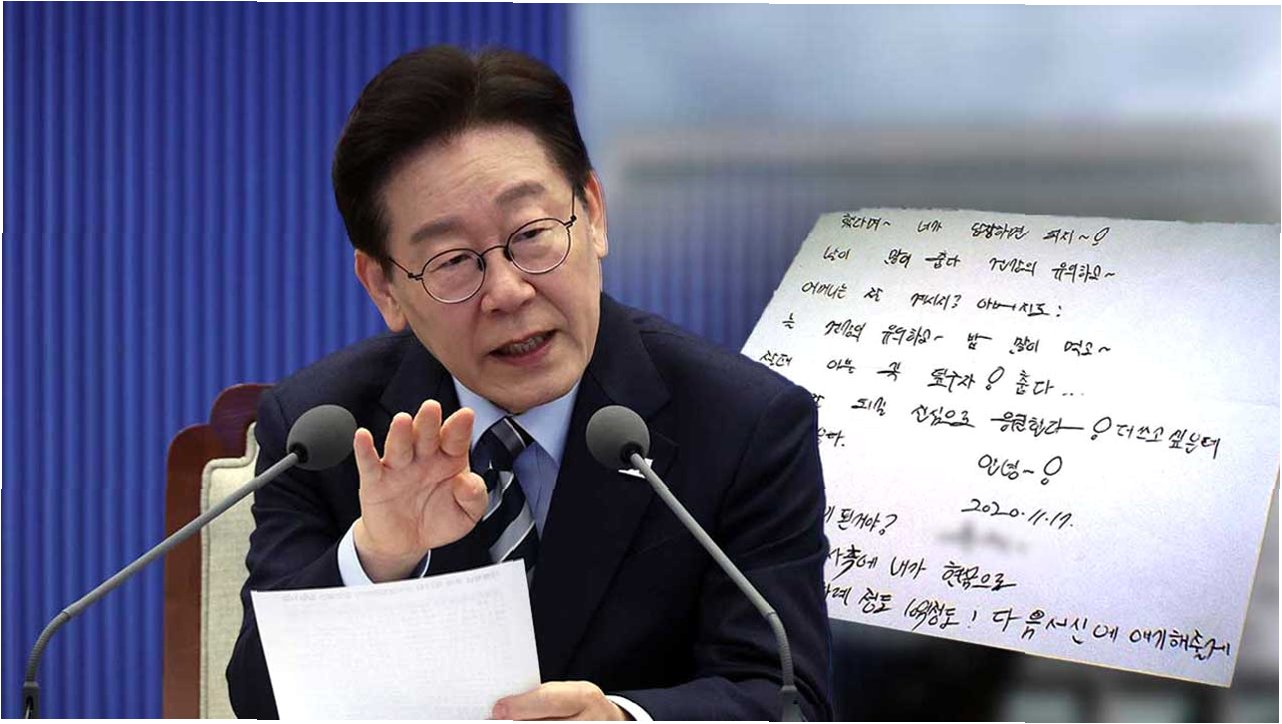 했다며~ 너가 답장하면 되지~!
날이 많이 춥다 건강의 유의하고~
어머니는 잘 계시지? 아버지도:
는 건강의 유의하고~ 밥 많이 먹고~
아픈 꼭 춥다...
되길 진심으로 응원한다 ! 더 쓰고 싶은데
안녕~!
2020.11.17.
된거야?
측에 내가 현금으로
정도 10억정도! 다음 서신에 얘기해줄게